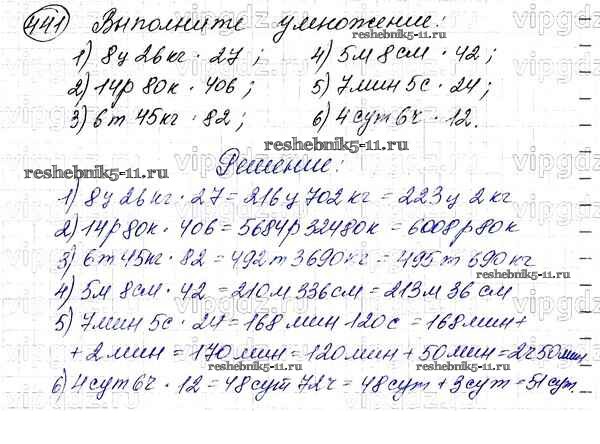 441 Выполните умножение:
1) 8ц 26кг · 27; 4) 5м 8см · 42;
2) 14р 80к · 406; 5) 7мин 5с · 24;
3) 6т 45кг · 82; 6) 4сут 6ч · 12.
reshebnik5-11.ru
reshebnik5-11.ru
Решение:
reshebnik5-11.ru
1) 8ц 26кг · 27 = 216ц 702кг = 223ц 2кг
2) 14р 80к · 406 = 5684р 32480к = 6008р 80к
3) 6т 45кг · 82 = 492т 3690кг = 495т 690кг
reshebnik5-11.ru
4) 5м 8см · 42 = 210м 336см = 213м 36см
5) 7мин 5с · 24 = 168мин 120с = 168мин +
+ 2мин = 170мин = 120мин + 50мин = 2ч 50мин
reshebnik5-11.ru
6) 4сут 6ч · 12 = 48сут 72ч = 48сут + 3сут = 51сут.